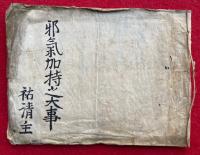 邪氣加持大事
祐清主